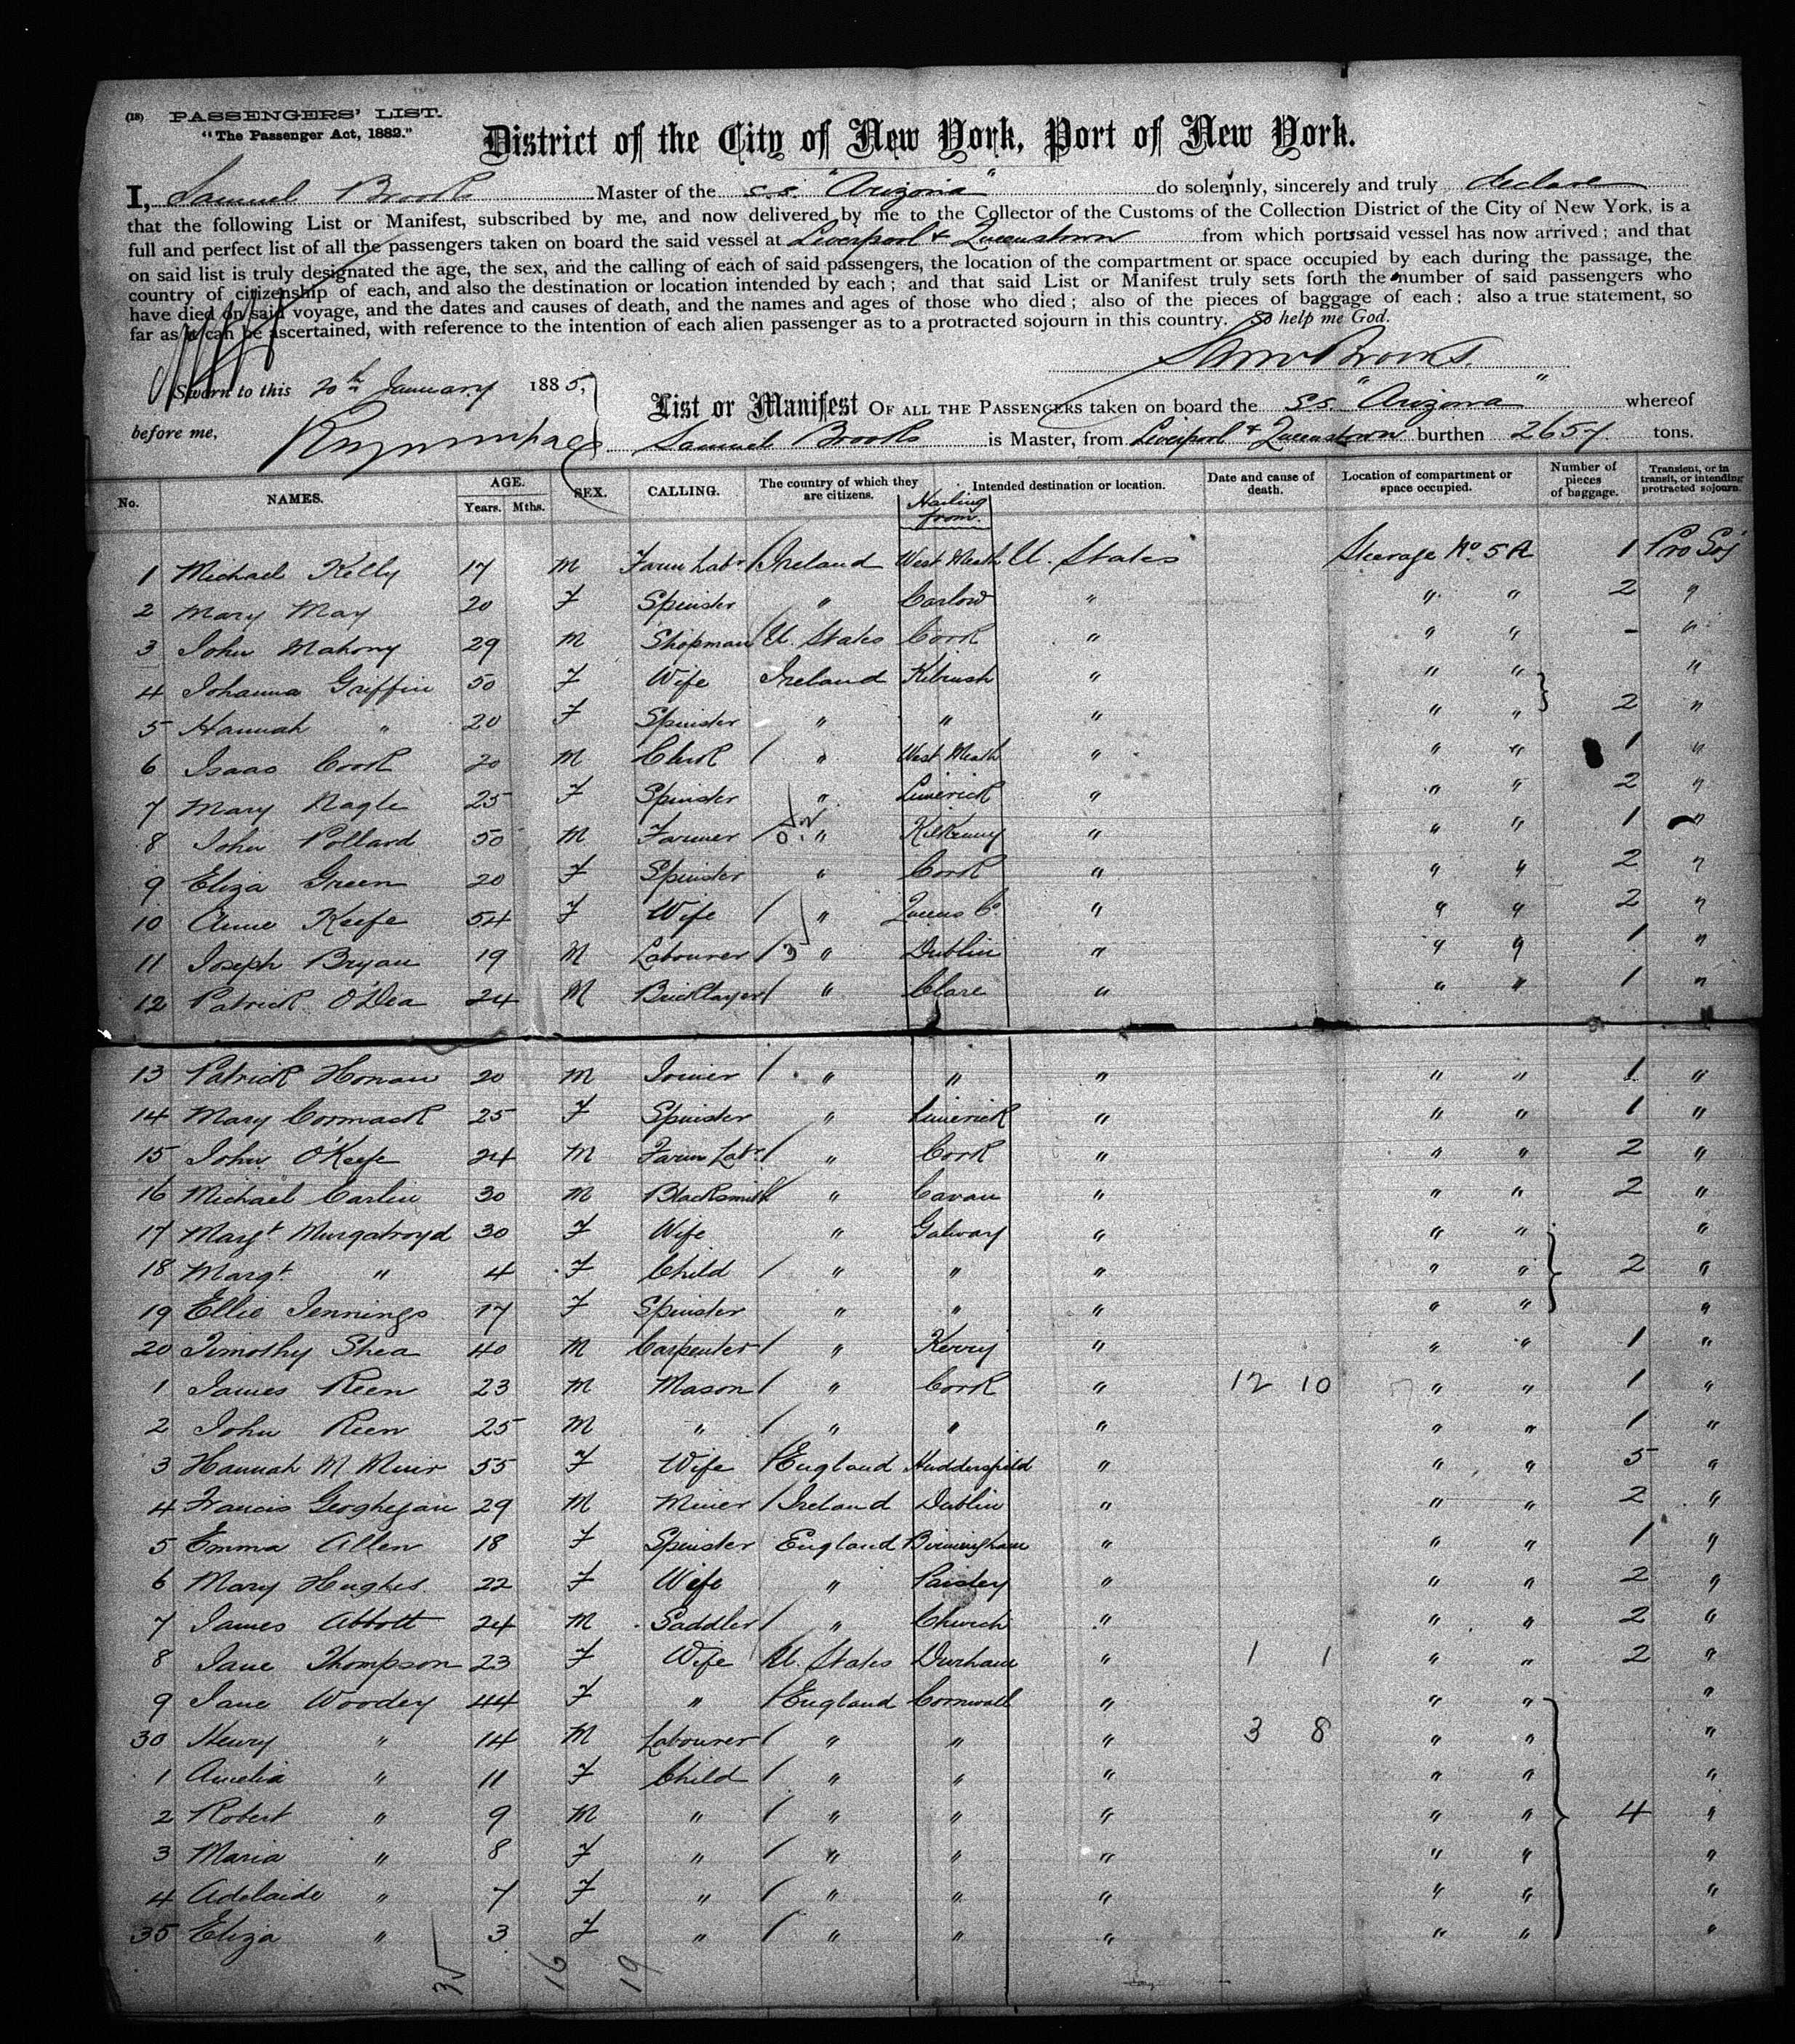 (18) PASSENGERS' LIST.
"The Passenger Act, 1882."
District of the City of New York, Port of New York.
I, Samuel Brooks Master of the s.s. "Arizona" do solemnly, sincerely and truly declare
that the following List or Manifest, subscribed by me, and now delivered by me to the Collector of the Customs of the Collection District of the City of New York, is a
full and perfect list of all the passengers taken on board the said vessel at Liverpool & Queenstown from which ports said vessel has now arrived; and that
on said list is truly designated the age, the sex, and the calling of each of said passengers, the location of the compartment or space occupied by each during the passage, the
country of citizenship of each, and also the destination or location intended by each; and that said List or Manifest truly sets forth the number of said passengers who
have died on said voyage, and the dates and causes of death, and the names and ages of those who died; also of the pieces of baggage of each; also a true statement, so
far as it can be ascertained, with reference to the intention of each alien passenger as to a protracted sojourn in this country. So help me God.
Saml Brooks.
Sworn to this 20th January 1885,
List or Manifest OF ALL THE PASSENGERS taken on board the s.s. "Arizona" whereof
before me, Samuel Brooks is Master, from Liverpool & Queenstown burthen 2657 tons.
No. NAMES. AGE. Years. Mths. SEX. CALLING. The country of which they are citizens. Hailing from. Intended destination or location. Date and cause of death. Location of compartment or space occupied. Number of pieces of baggage. Transient, or in transit, or intending protracted sojourn.
1 Michael Kelly 17 M Farm Labr / Ireland West Meath U. States Steerage No. 5 A 1 Pro Soj
2 Mary May 20 F Spinster " Carlow " " " 2 "
3 John Mahony 29 M Shopman / U. States Cork " " " - "
4 Johanna Griffin 50 F Wife Ireland Kilrush " " " "
5 Hannah " 20 F Spinster " " " " " 2 "
6 Isaac Cook 20 M Clerk / " West Meath " " " 1 "
7 Mary Nagle 25 F Spinster " Limerick " " " 2 "
8 John Pollard 50 M Farmer / " Kilkenny " " " 1 "
9 Eliza Green 20 F Spinster " Cork " " " 2 "
10 Anne Keefe 54 F Wife / " Queens Co " " " 2 "
11 Joseph Bryan 19 M Labourer / 3 " Dublin " " " 1 "
12 Patrick O'Dea 24 M Bricklayer / " Clare " " " 1 "
13 Patrick Honan 20 M Joiner / " " " " " 1 "
14 Mary Cormack 25 F Spinster " Limerick " " " 1 "
15 John O'Keefe 24 M Farm Labr / " Cork " " " 2 "
16 Michael Carlin 30 M Blacksmith / " Cavan " " " 2 "
17 Margt Murgatroyd 30 F Wife " Galway " " " "
18 Margt " 4 F Child / " " " " " 2 "
19 Ellie Jennings 17 F Spinster " " " " " "
20 Timothy Shea 40 M Carpenter / " Kerry " " " 1 "
1 James Reen 23 M Mason / " Cork " 12 10 " " 1 "
2 John Reen 25 M " / " " " " " 1 "
3 Hannah M Muir 55 F Wife / England Huddersfield " " " 5 "
4 Francis Geoghegan 29 M Miner / Ireland Dublin " " " 2 "
5 Emma Allen 18 F Spinster England Birmingham " " " 1 "
6 Mary Hughes 22 F Wife " Paisley " " " 2 "
7 James Abbott 24 M Saddler / " Church " " " 2 "
8 Jane Thompson 23 F Wife / U. States Durham " 1 1 " " 2 "
9 Jane Woodey 44 F " / England Cornwall " " " "
30 Henry " 14 M Labourer / " " " 3 8 " " "
1 Amelia " 11 F Child / " " " " " "
2 Robert " 9 M " / " " " " " 4 "
3 Maria " 8 F " / " " " " " "
4 Adelaide " 7 F " / " " " " " "
35 Eliza " 3 F " / " " " " " "
35 16 19